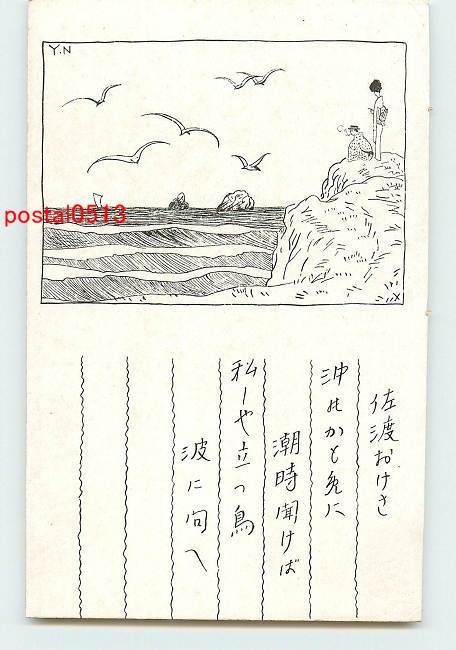 Y.N
postal0513
X
佐渡おけさ
沖のかもめに
潮時聞けば
私しや立つ鳥
波に聞へ